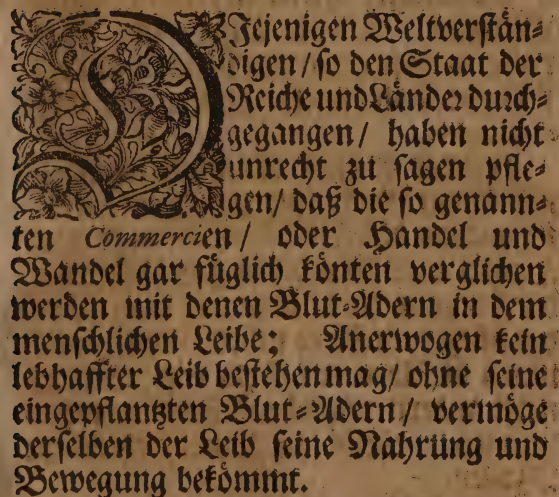 DIejenigen Weltverstän⸗
digen / so den Staat der
Reiche und Länder durch⸗
gegangen / haben nicht
unrecht zu sagen pfle⸗
gen / daß die so genann⸗
ten Commercien / oder Handel und
Wandel gar füglich könten verglichen
werden mit denen Blut⸗Adern in dem
menschlichen Leibe; Anerwogen kein
lebhaffter Leib bestehen mag / ohne seine
eingepflantzten Blut⸗Adern / vermöge
derselben der Leib seine Nahrung und
Bewegung bekömmt.